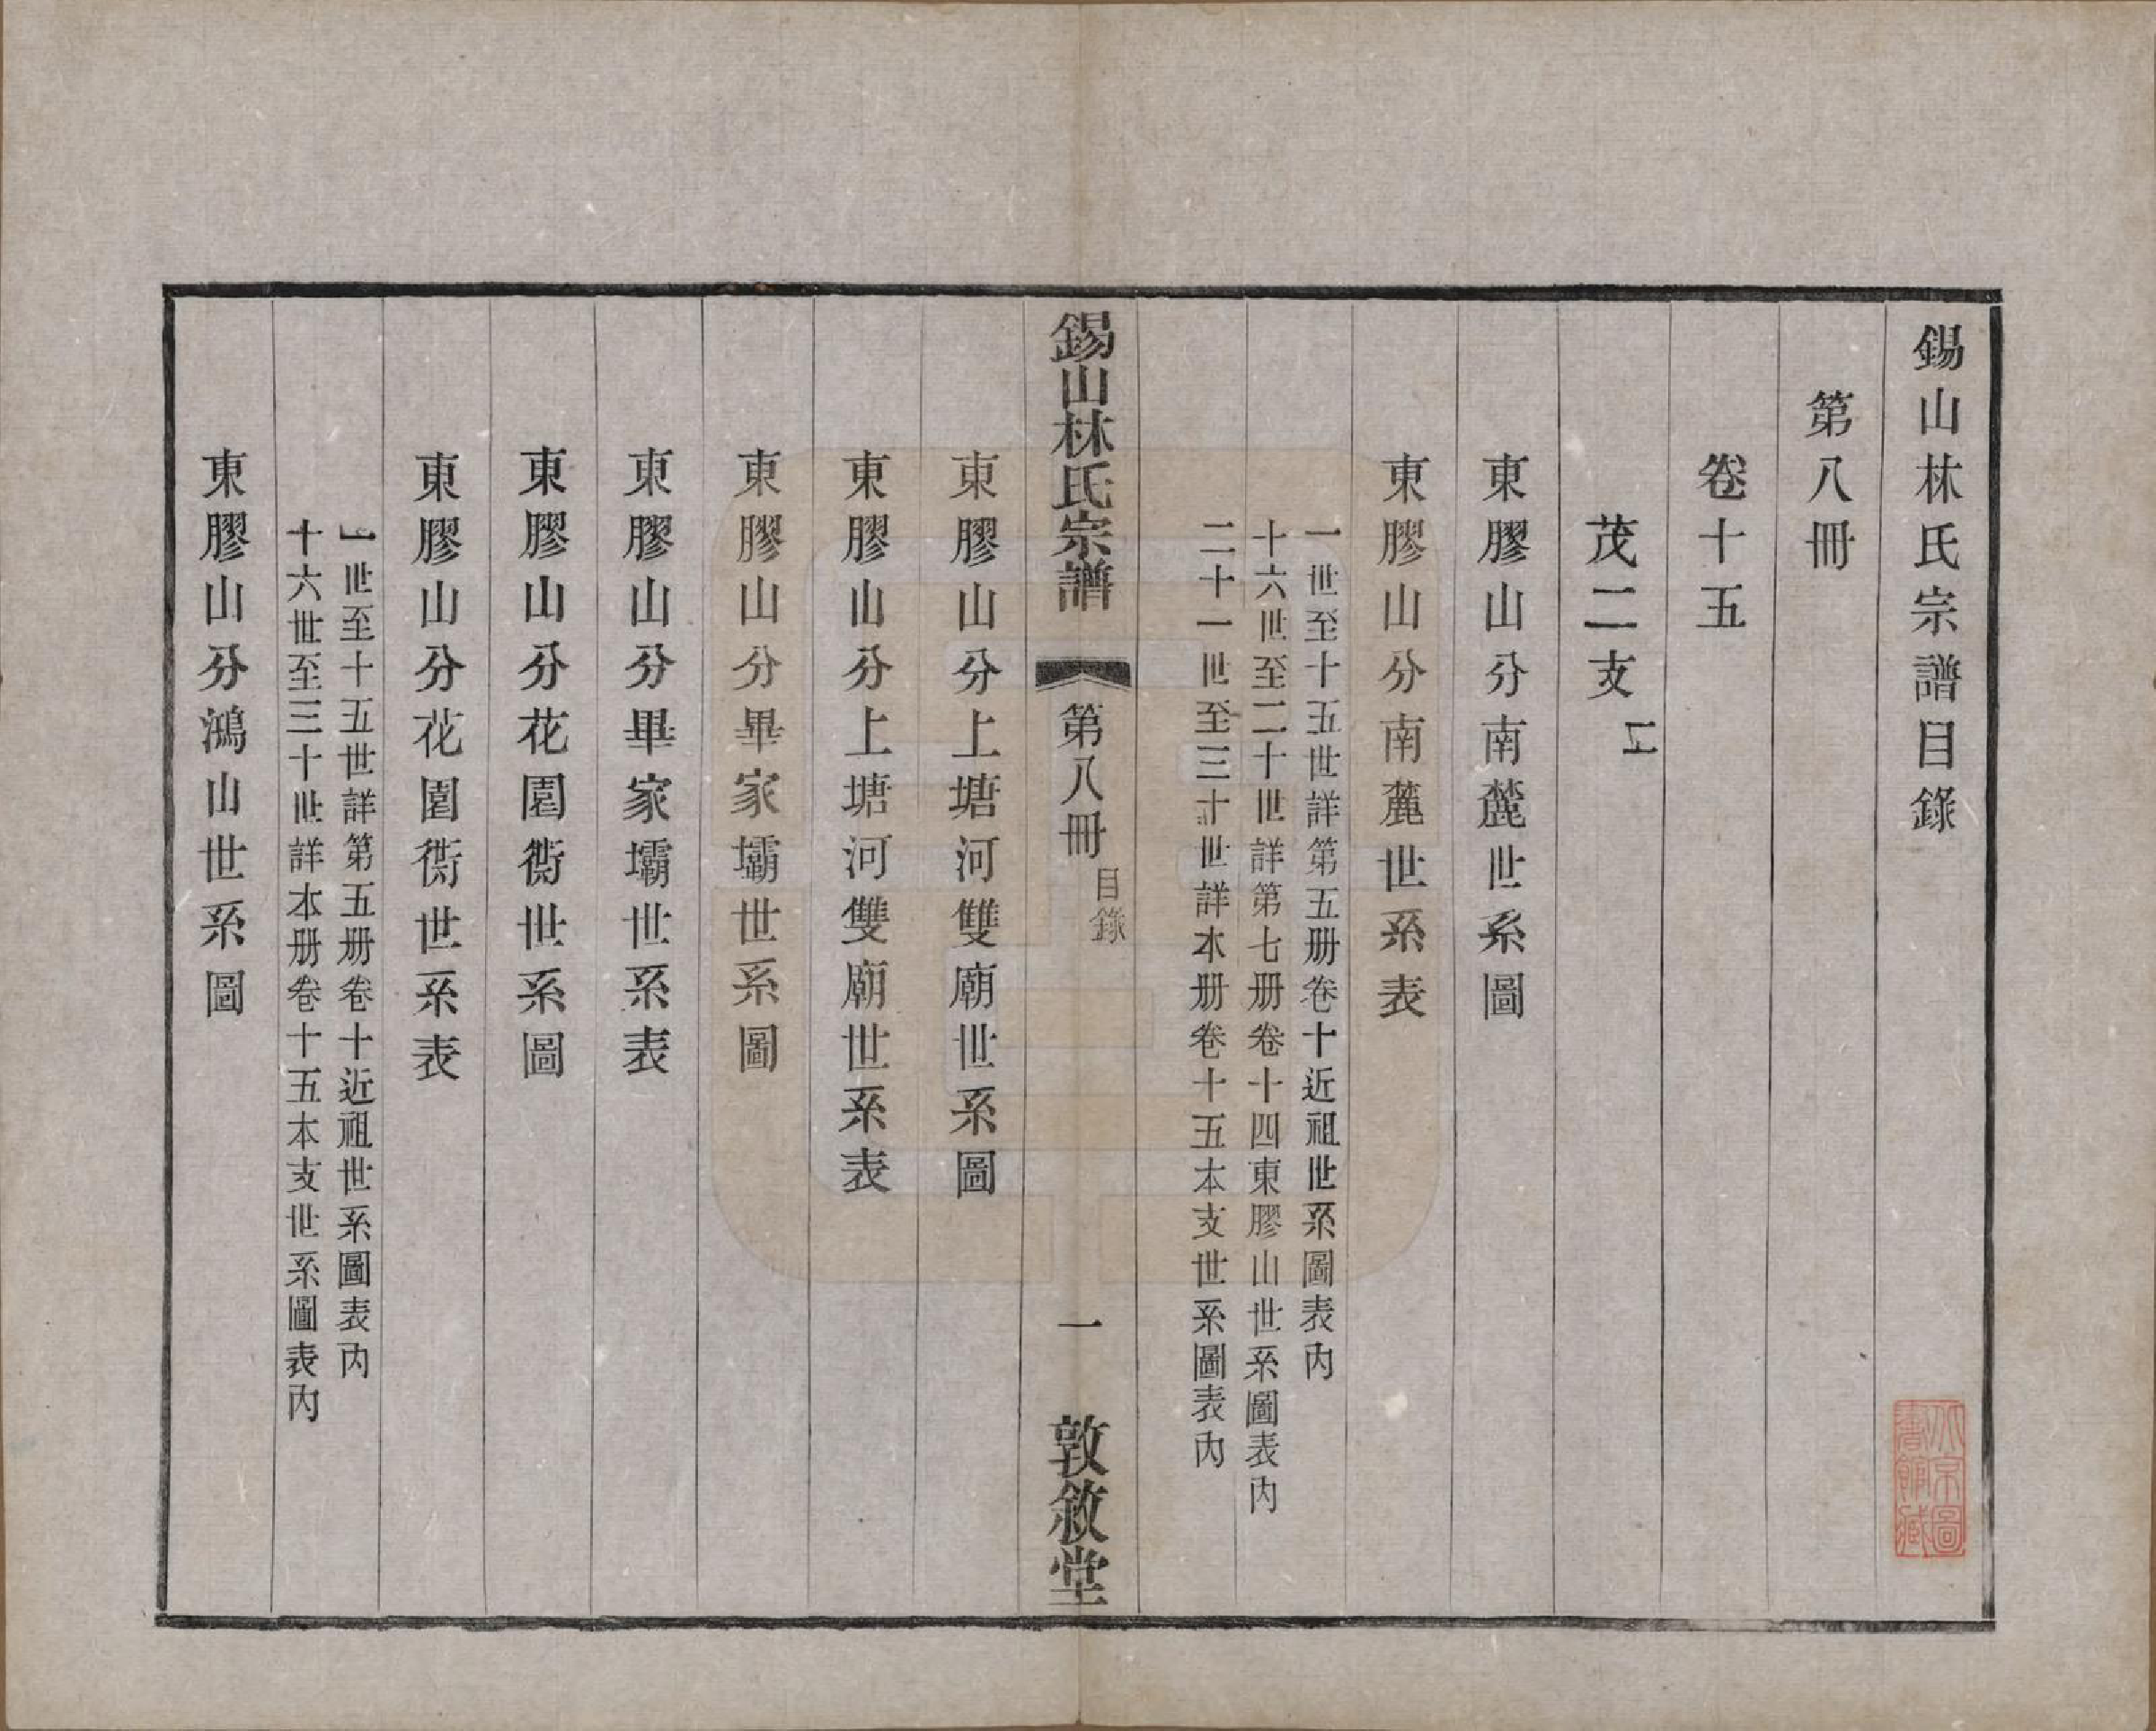 錫山林氏宗譜目錄
第八冊
卷十五
茂二支
東膠山分南麓世系圖
東膠山分南麓世系表
一世至十五世詳第五册卷十近祖世系圖表內
十六世至二十世詳第七册卷十四東膠山世系圖表內
二十一世至三十世詳本册卷十五本支世系圖表內
錫山林氏宗譜
第八冊
目錄
一
敦敘堂
東膠山分上塘河雙廟世系圖
東膠山分上塘河雙廟世系表
東膠山分畢家壩世系圖
東膠山分畢家壩世系表
東膠山分花園衖世系圖
東膠山分花園衖世系表
一世至十五世詳第五册卷十近祖世系圖表內
十六世至三十世詳本册卷十五本支世系圖表內
東膠山分鴻山世系圖